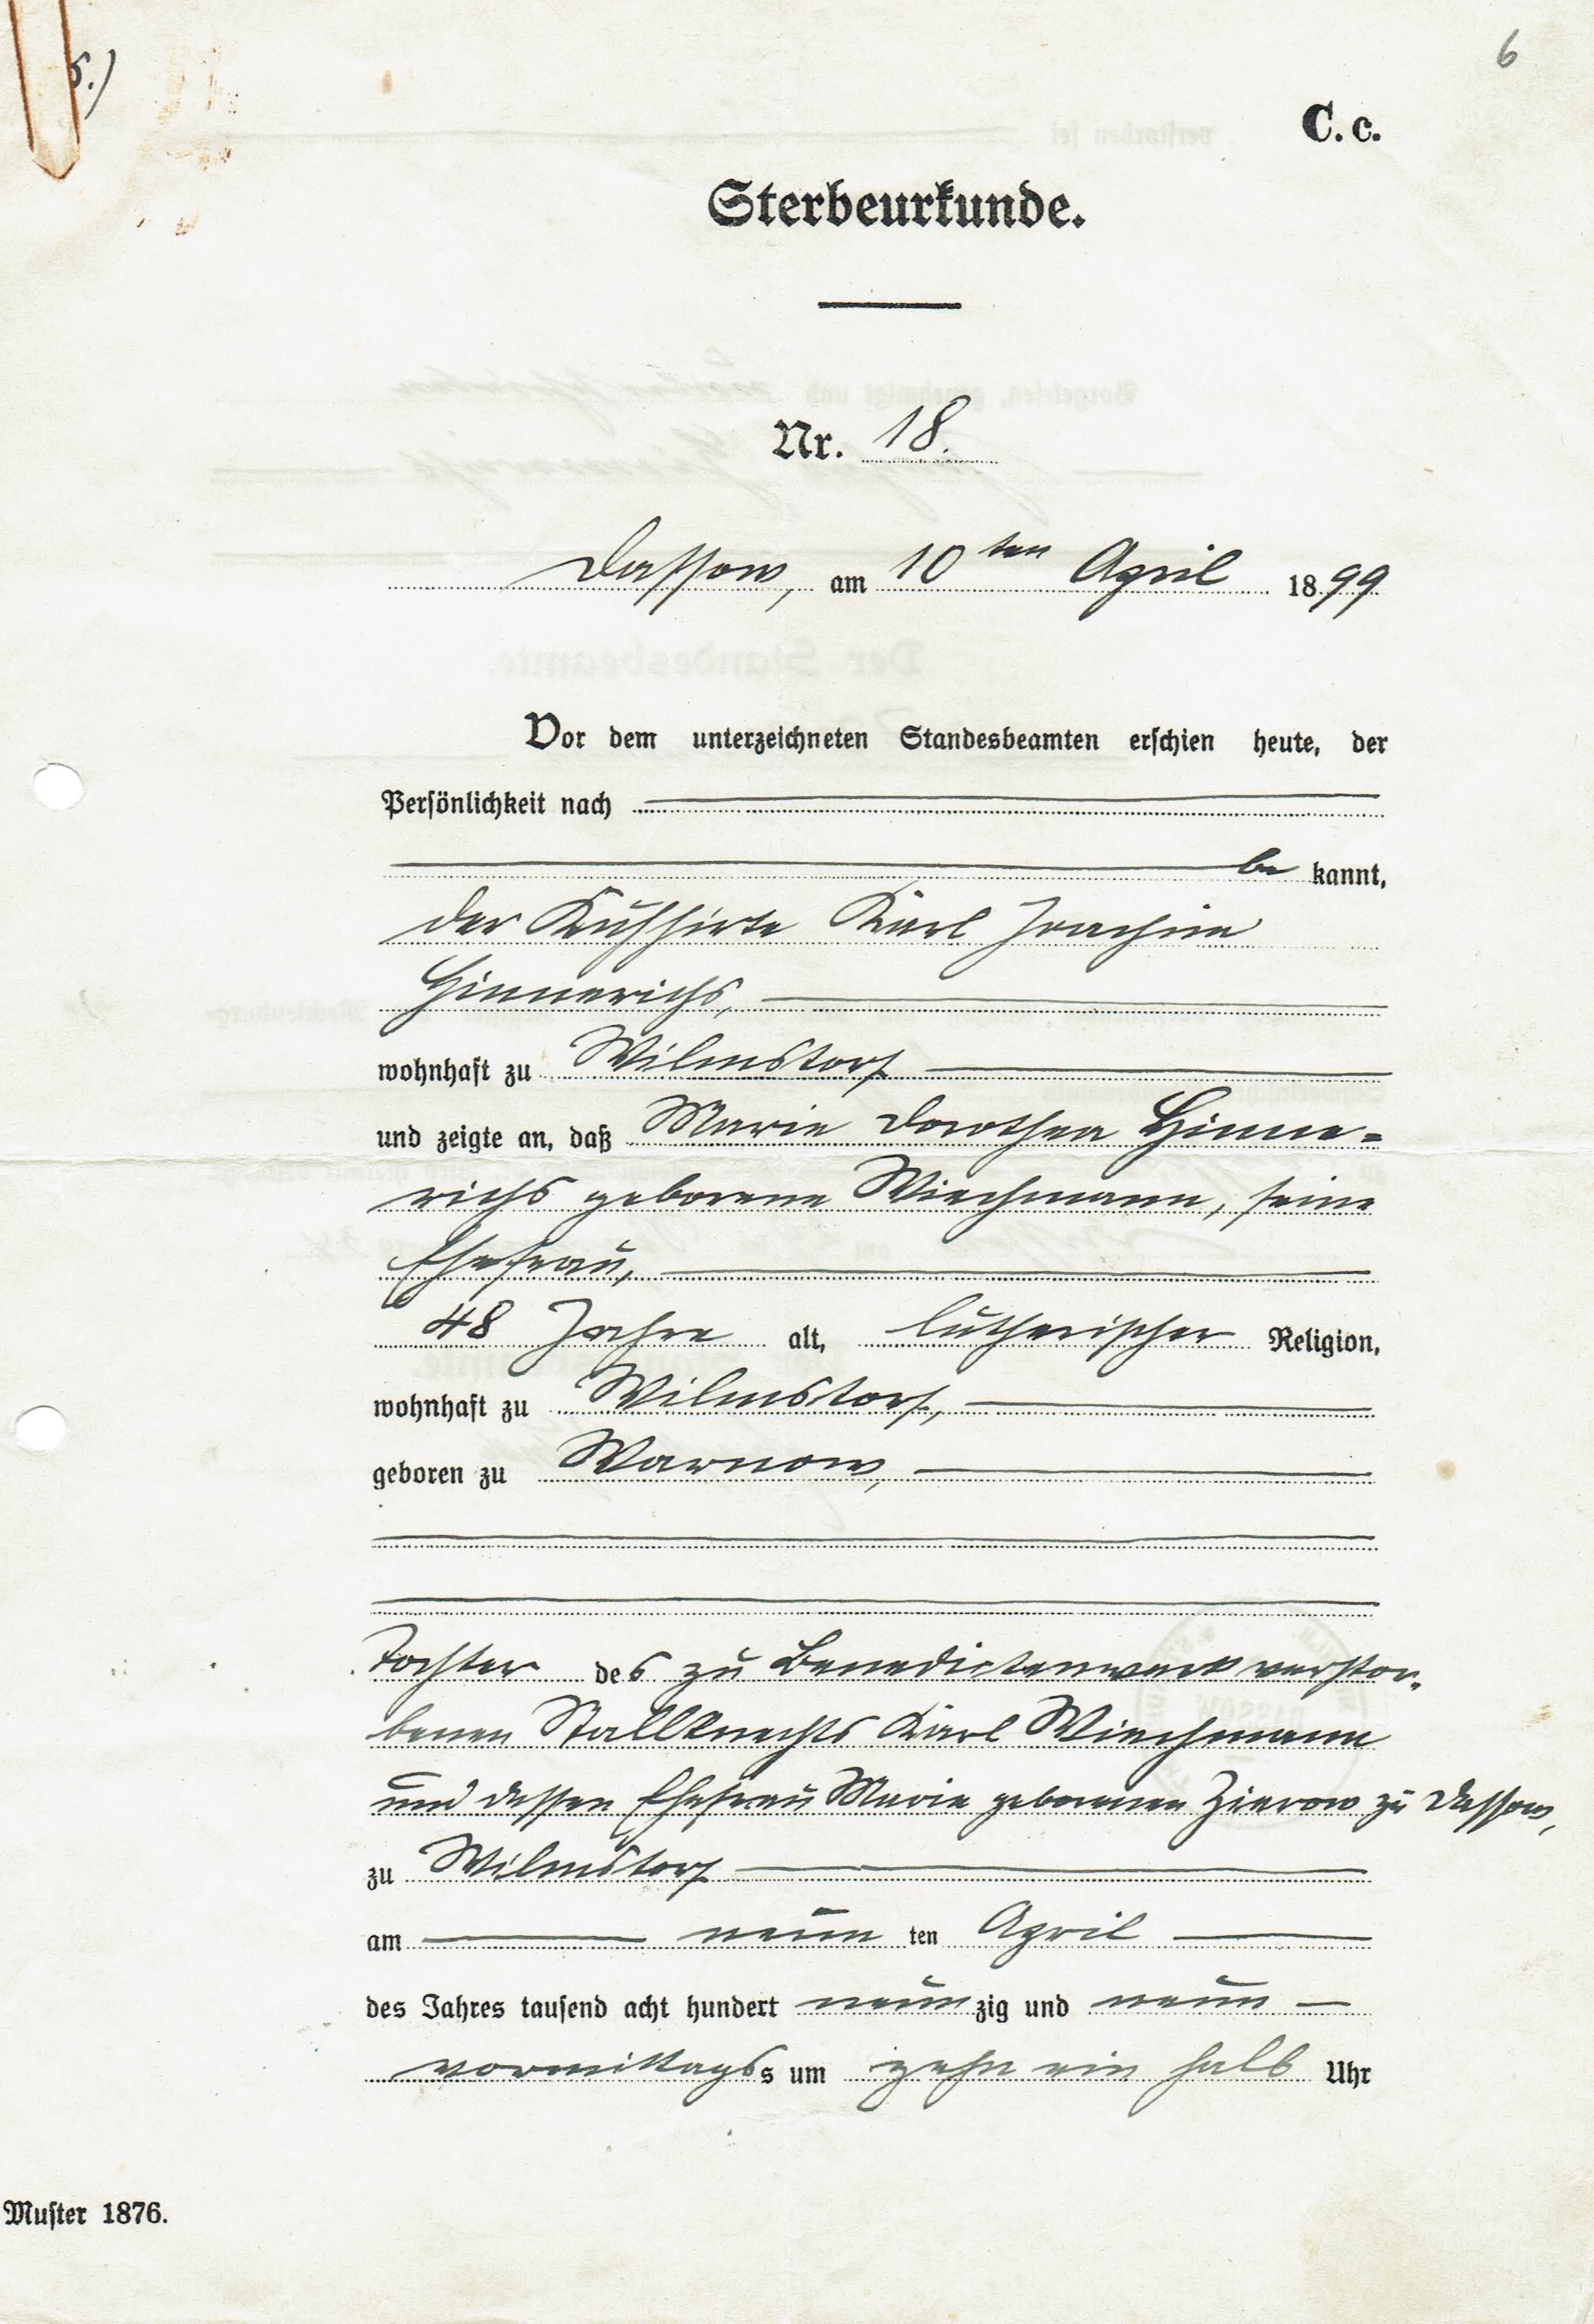 5.)
6
C. c.
Sterbeurkunde.
Nr. 18.
Dassow, am 10ten April 1899
Vor dem unterzeichneten Standesbeamten erschien heute, der
Persönlichkeit nach
be kannt,
der Kuhhirte Karl Joachim
Hinnerichs,
wohnhaft zu Wilmstorf
und zeigte an, daß Marie Dorothea Hinne=
richs geborene Wiechmann, seine
Ehefrau,
48 Jahre alt, lutherischer Religion,
wohnhaft zu Wilmstorf,
geboren zu Warnow,
Tochter des zu verstor-
benen Stallknechts Karl Wiechmann
und dessen Ehefrau Marie geborenen Zierow zu Dassow,
zu Wilmstorf
am neun ten April
des Jahres tausend acht hundert neun zig und neun
vormittags s um zehn ein halb Uhr
Muster 1876.